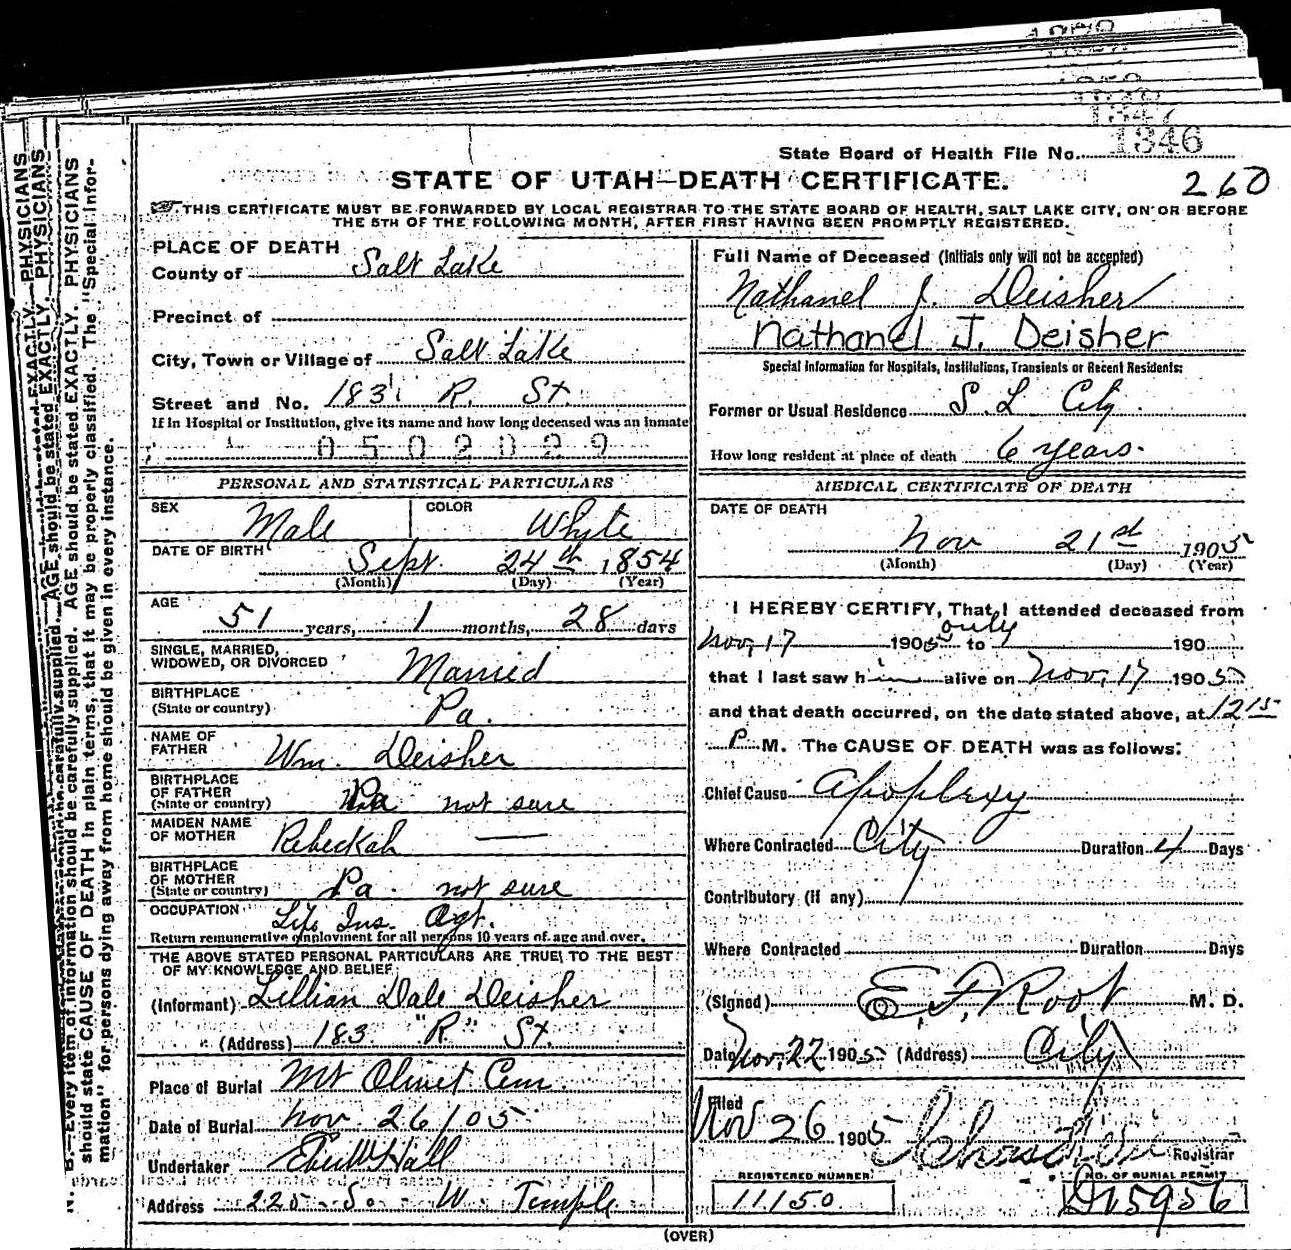 1346
State Board of Health File No.
260
STATE OF UTAH—DEATH CERTIFICATE.
THIS CERTIFICATE MUST BE FORWARDED BY LOCAL REGISTRAR TO THE STATE BOARD OF HEALTH, SALT LAKE CITY, ON OR BEFORE
THE 5TH OF THE FOLLOWING MONTH, AFTER FIRST HAVING BEEN PROMPTLY REGISTERED.
PLACE OF DEATH
County of Salt Lake
Precinct of
City, Town or Village of Salt Lake
Street and No. 183 R. St.
If in Hospital or Institution, give its name and how long deceased was an inmate
0502029
PERSONAL AND STATISTICAL PARTICULARS
SEX Male COLOR White
DATE OF BIRTH Sept 24th 1854
(Month) (Day) (Year)
AGE
51 years, 1 months, 28 days
SINGLE, MARRIED,
WIDOWED, OR DIVORCED Married
BIRTHPLACE
(State or country) Pa.
NAME OF
FATHER Wm. Deisher
BIRTHPLACE
OF FATHER
(State or country) Pa not sure
MAIDEN NAME
OF MOTHER Rebeckah —
BIRTHPLACE
OF MOTHER
(State or country) Pa. not sure
OCCUPATION Life Ins. Agt.
Return remunerative employment for all persons 10 years of age and over.
THE ABOVE STATED PERSONAL PARTICULARS ARE TRUE TO THE BEST
OF MY KNOWLEDGE AND BELIEF
(Informant) Lillian Dale Deisher
(Address) 183 "R" St.
Place of Burial Mt Olivet Cem
Date of Burial Nov. 26/05
Undertaker Hall
Address 225 So. W. Temple
Full Name of Deceased (Initials only will not be accepted)
Nathanel J. Deisher
Nathanel J. Deisher
Special Information for Hospitals, Institutions, Transients or Recent Residents:
Former or Usual Residence S. L City
How long resident at place of death 6 years.
MEDICAL CERTIFICATE OF DEATH
DATE OF DEATH
Nov 21st 1905
(Month) (Day) (Year)
I HEREBY CERTIFY, That I attended deceased from
Nov. 17 1905 to only 190
that I last saw him alive on Nov. 17 1905
and that death occurred, on the date stated above, at 12 15
P M. The CAUSE OF DEATH was as follows:
Chief Cause Apoplexy
Where Contracted City Duration 4 Days
Contributory (if any)
Where Contracted Duration Days
(Signed) E. F. Root M. D.
Date Nov. 22 1905 (Address) City
Filed
Nov 26 1905
Registrar
REGISTERED NUMBER
11150
NO. OF BURIAL PERMIT
D15956
(OVER)
N. B.—Every item of information should be carefully supplied. AGE should be stated EXACTLY. PHYSICIANS
should state CAUSE OF DEATH in plain terms, that it may be properly classified. The "Special Infor-
mation" for persons dying away from home should be given in every instance.